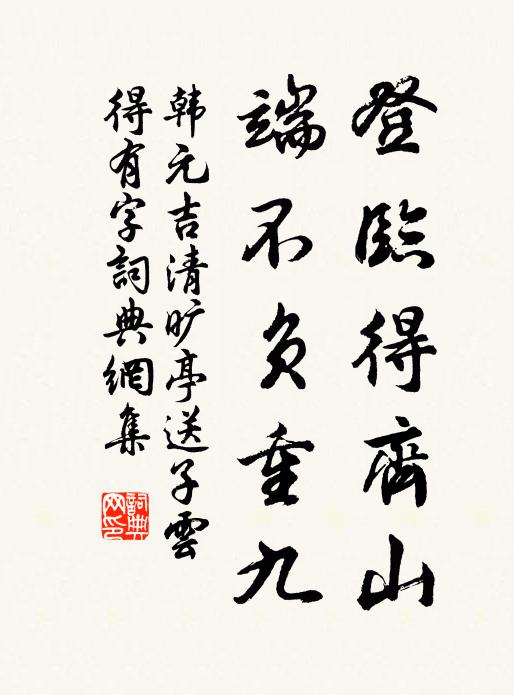 登臨得齊山
端不負重九
韩元吉清旷亭送子雲
得有字詞典網集
詞典
网印